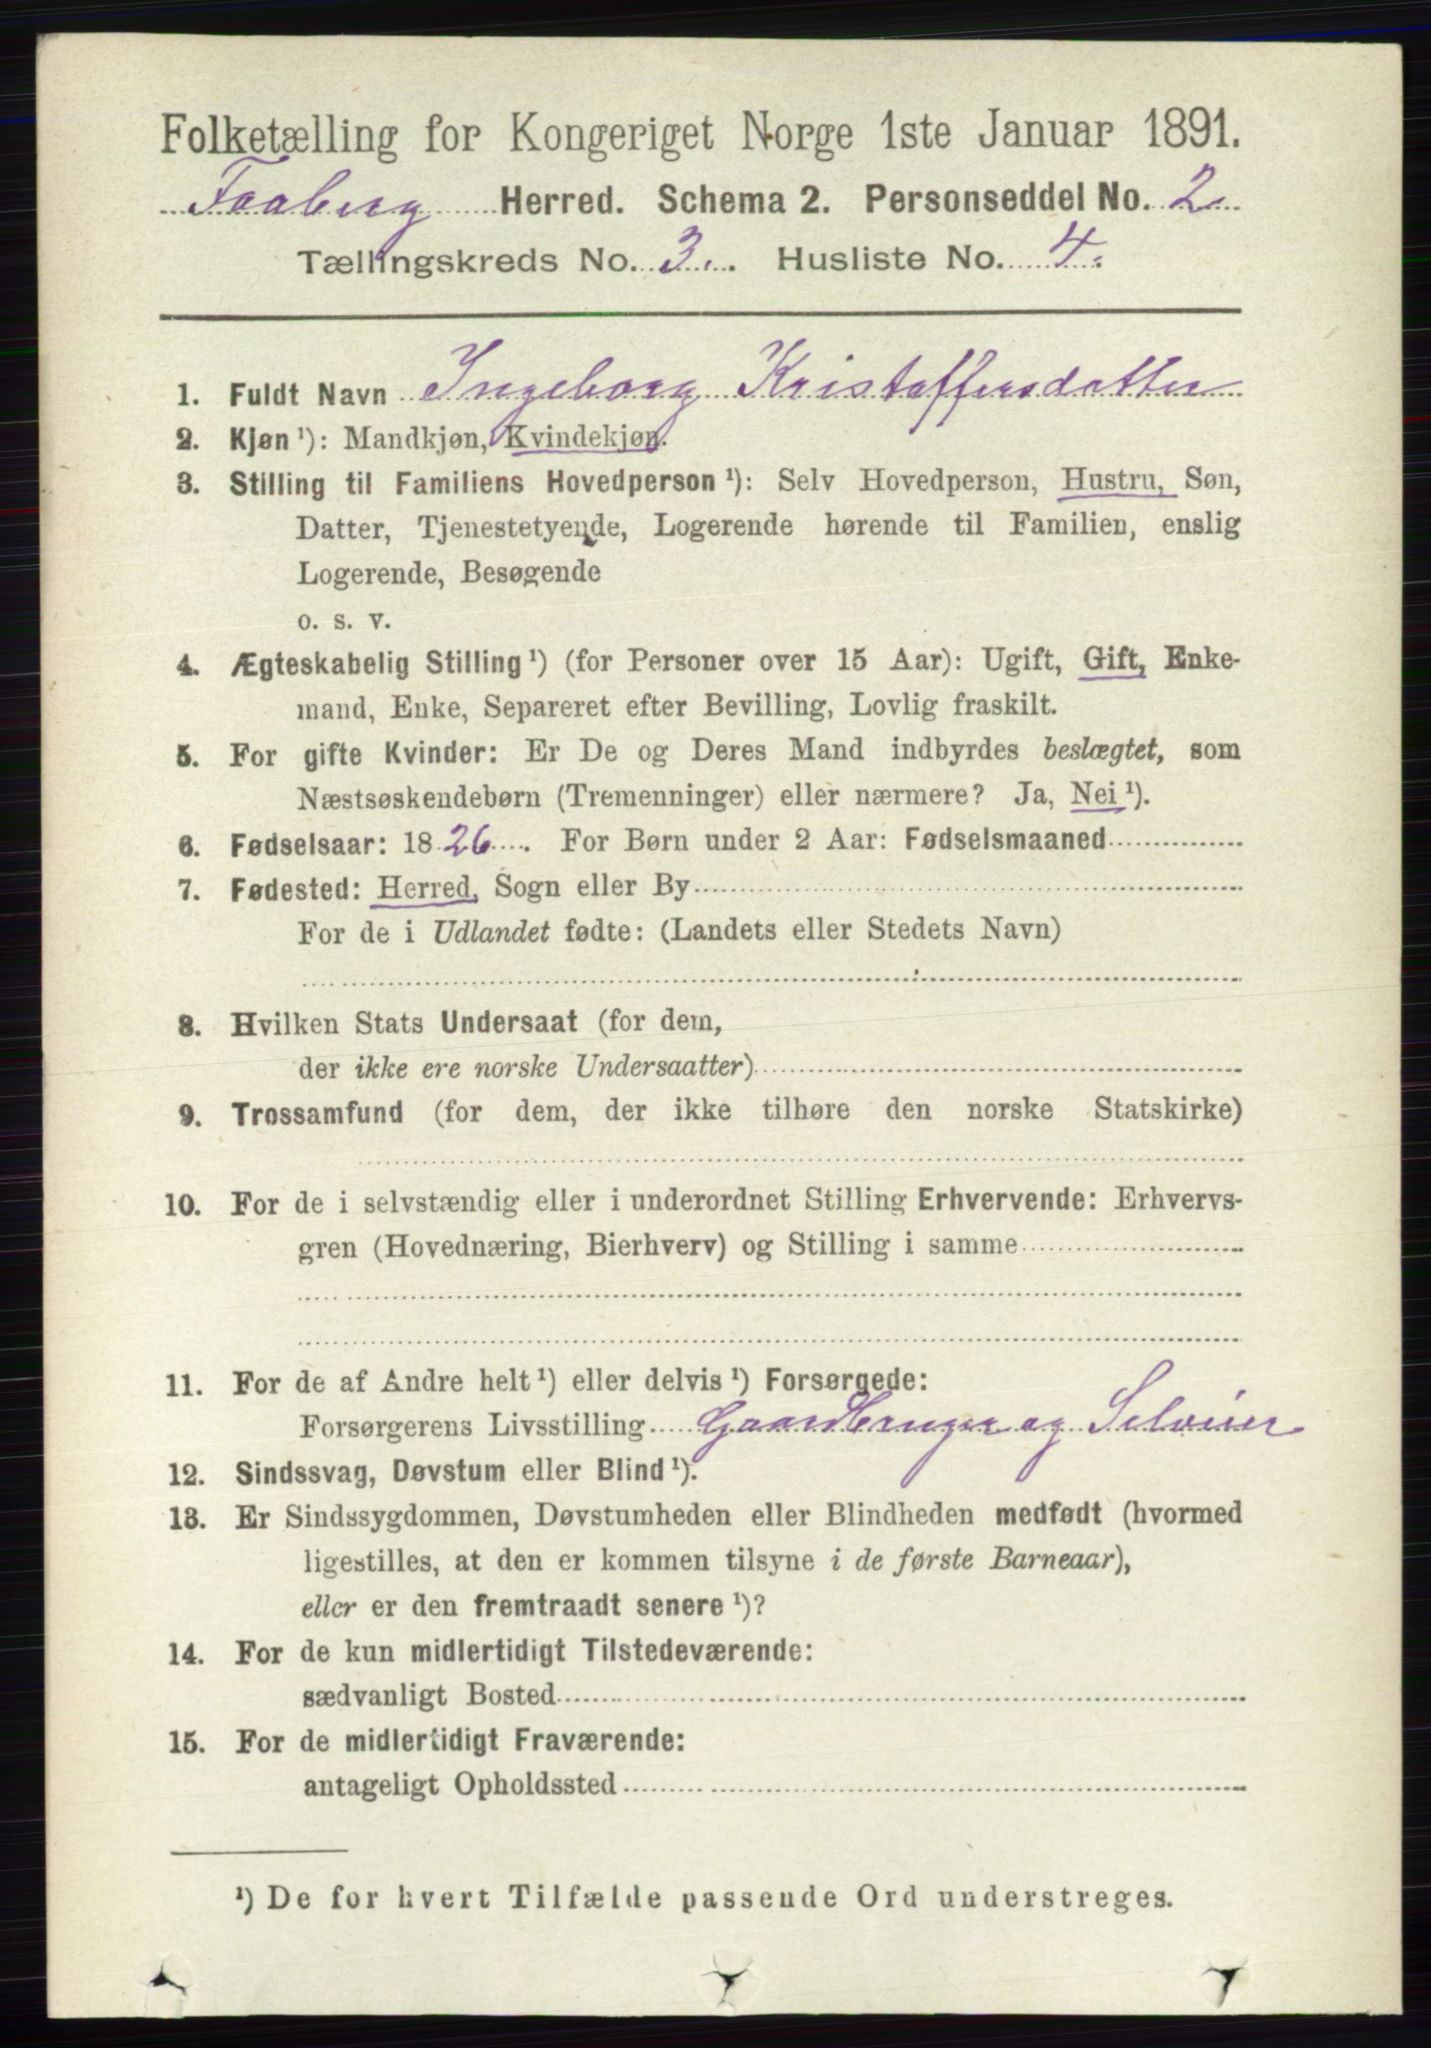 Folketælling for Kongeriget Norge 1ste Januar 1891.
Faaberg Herred. Schema 2. Personseddel No. 2.
Tællingskreds No. 3. Husliste No. 4.
1. Fuldt Navn Ingeborg Kristoffersdatter
2. Kjøn ¹): Mandkjøn, Kvindekjøn.
3. Stilling til Familiens Hovedperson ¹): Selv Hovedperson, Hustru, Søn,
Datter, Tjenestetyende, Logerende hørende til Familien, enslig
Logerende, Besøgende
o. s. v.
4. Ægteskabelig Stilling ¹) (for Personer over 15 Aar): Ugift, Gift, Enke-
mand, Enke, Separeret efter Bevilling, Lovlig fraskilt.
5. For gifte Kvinder: Er De og Deres Mand indbyrdes beslægtet, som
Næstsøskendebørn (Tremenninger) eller nærmere? Ja, Nei ¹).
6. Fødselsaar: 1826. For Børn under 2 Aar: Fødselsmaaned
7. Fødested: Herred, Sogn eller By
For de i Udlandet fødte: (Landets eller Stedets Navn)
8. Hvilken Stats Undersaat (for dem,
der ikke ere norske Undersaatter)
9. Trossamfund (for dem, der ikke tilhøre den norske Statskirke)
10. For de i selvstændig eller i underordnet Stilling Erhvervende: Erhvervs-
gren (Hovednæring, Bierhverv) og Stilling i samme
11. For de af Andre helt ¹) eller delvis ¹) Forsørgede:
Forsørgerens Livsstilling Gaardbruger og Selveier
12. Sindssvag, Døvstum eller Blind ¹).
13. Er Sindssygdommen, Døvstumheden eller Blindheden medfødt (hvormed
ligestilles, at den er kommen tilsyne i de første Barneaar),
eller er den fremtraadt senere ¹)?
14. For de kun midlertidigt Tilstedeværende:
sædvanligt Bosted
15. For de midlertidigt Fraværende:
antageligt Opholdssted
¹) De for hvert Tilfælde passende Ord understreges.